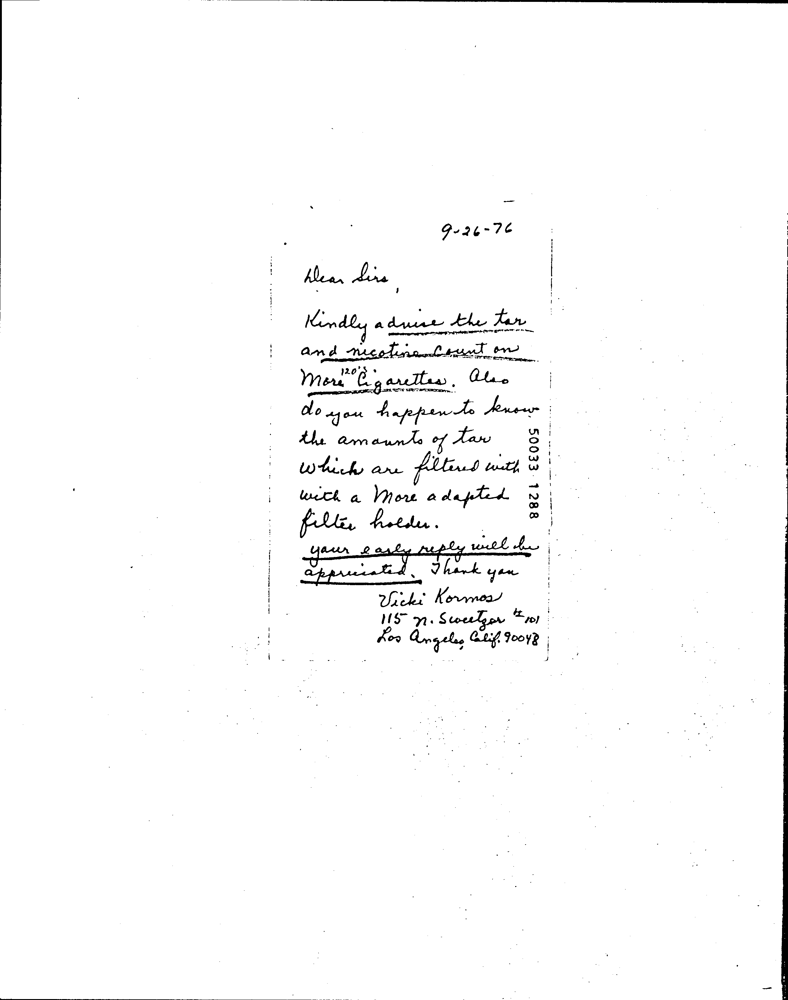 9-26-76
Dear Sirs,
Kindly advise the tar
and nicotine count on
More 120's Cigarettes. Also
do you happen to know
the amounts of tar
which are filtered with
with a More adapted
filter holder.
your early reply will be
appreciated. Thank you
Vicki Kormos
115 N. Sweetzer #101
Los Angeles, Calif. 90048
50033 1288